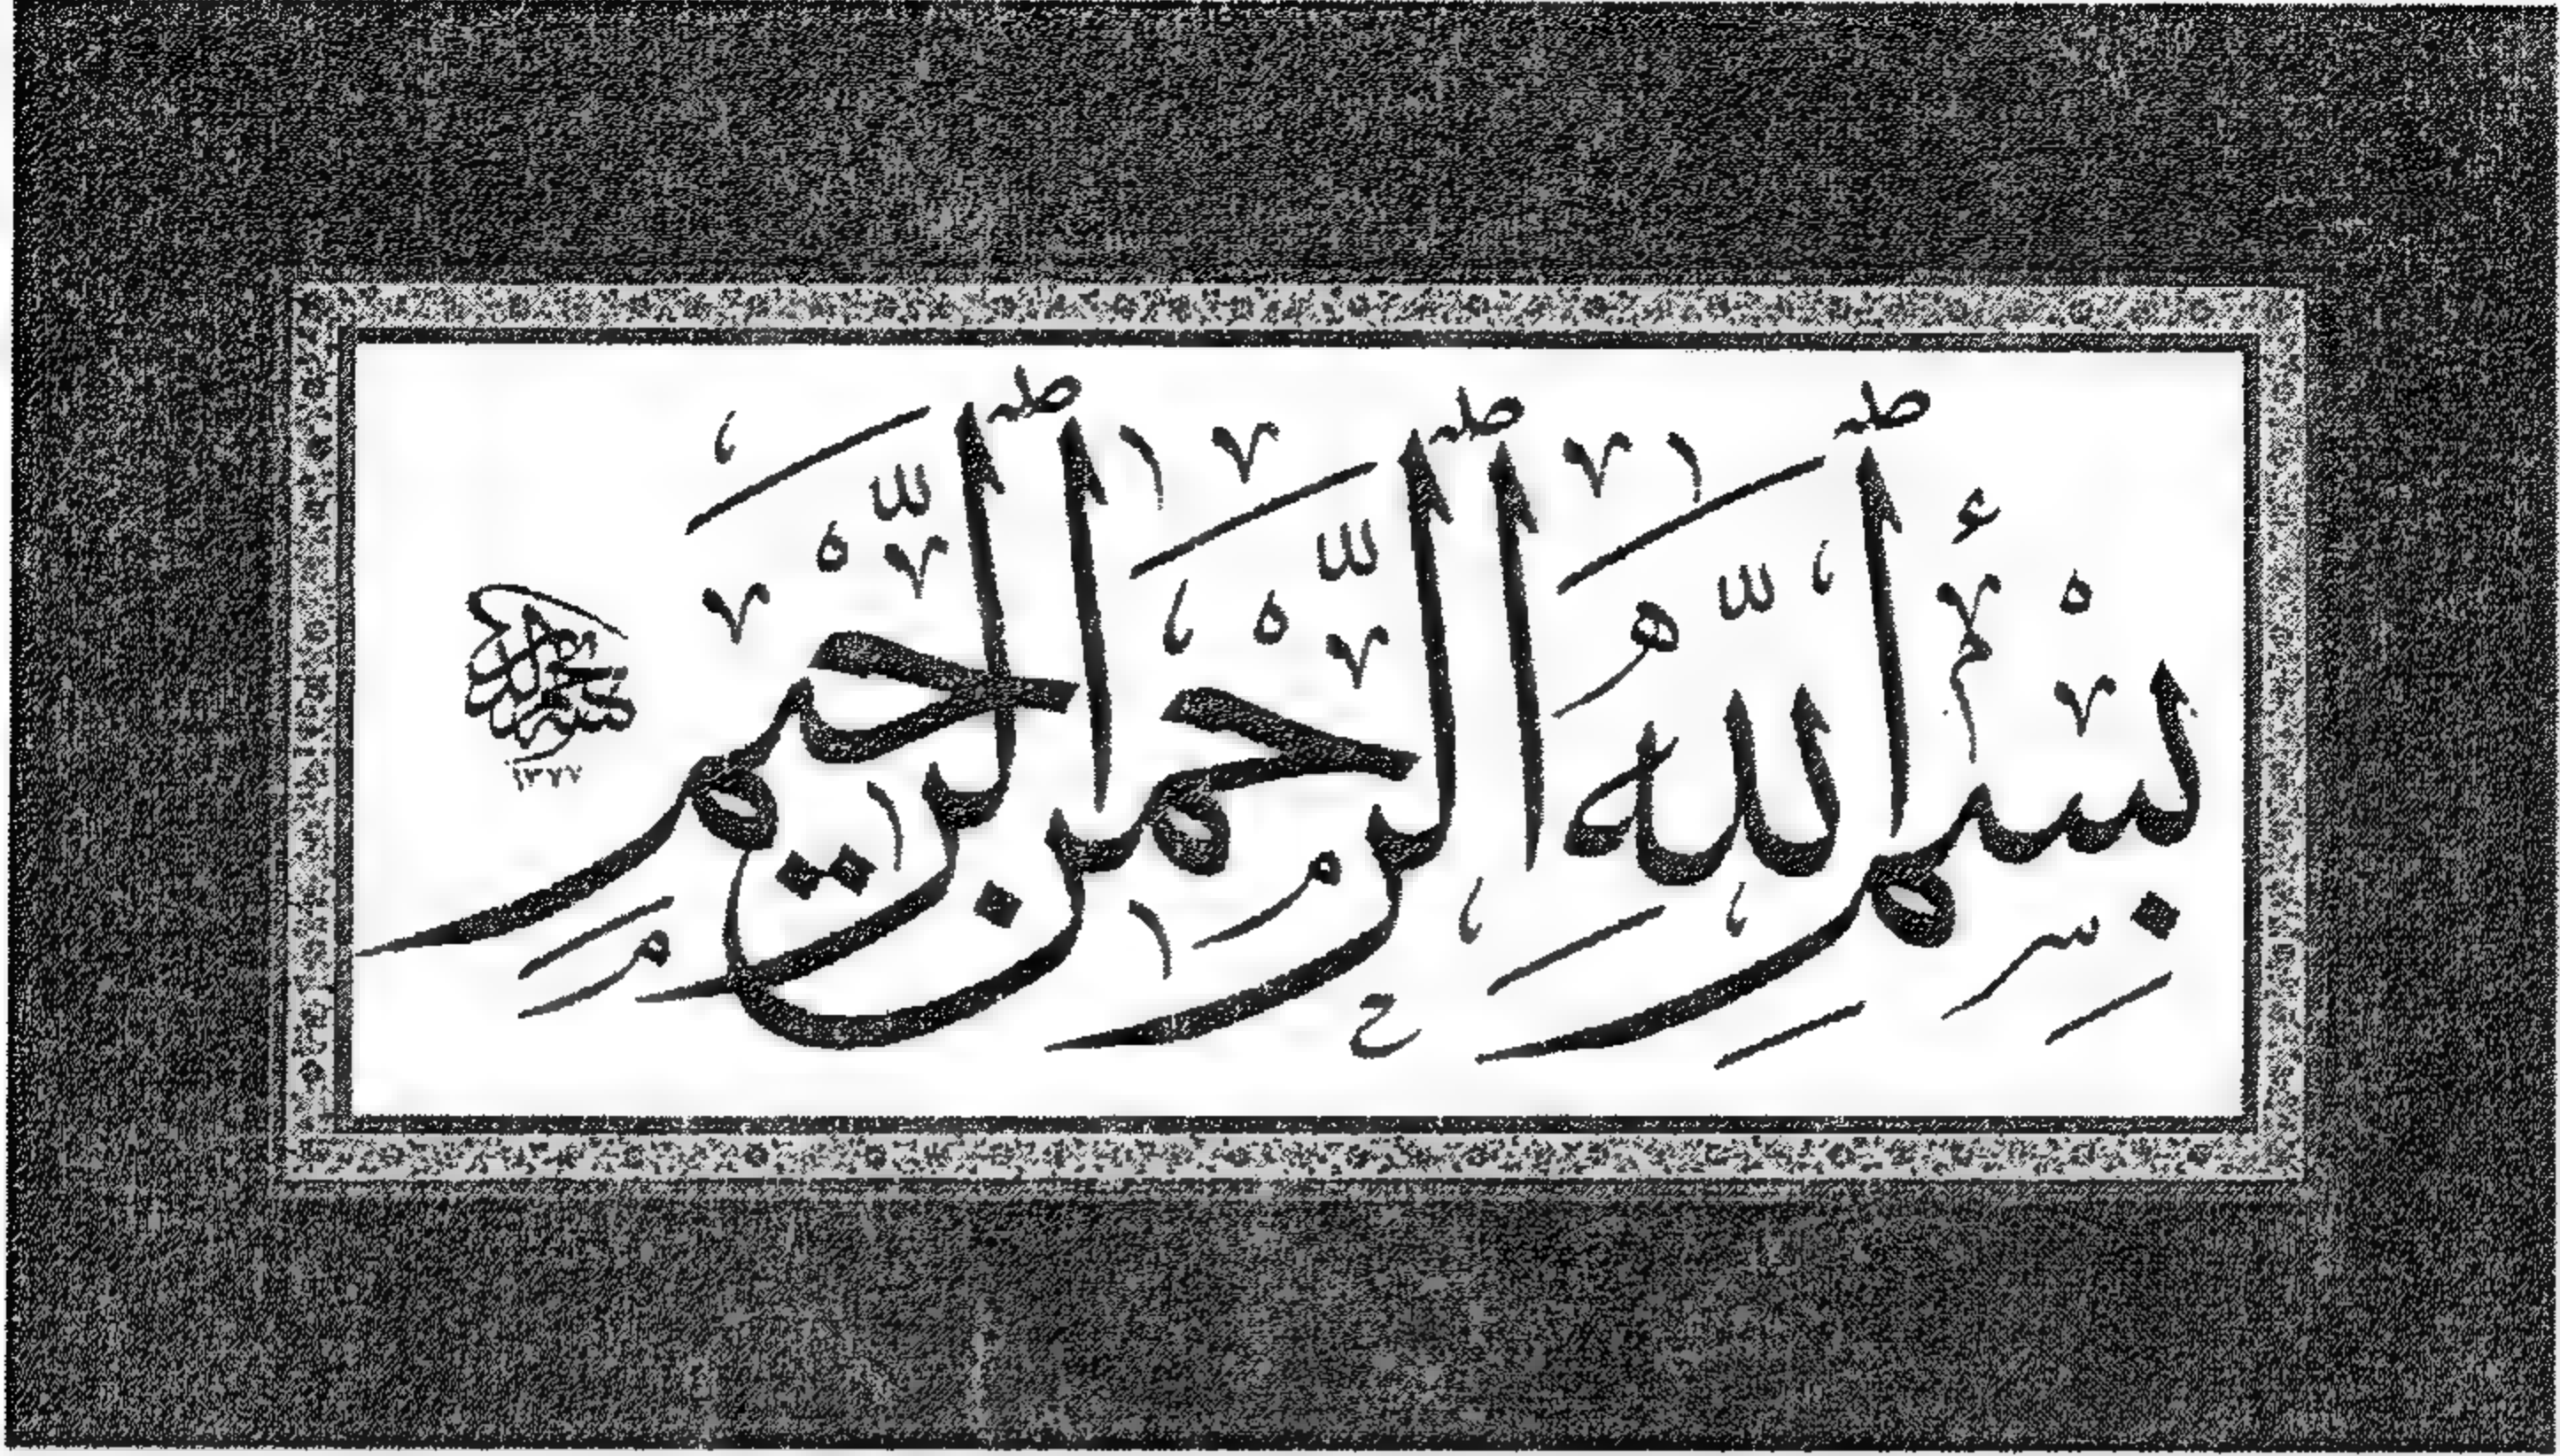 بِسْمِ اللّٰهِ الرَّحْمٰنِ الرَّحِيمِ
١٣٧٧